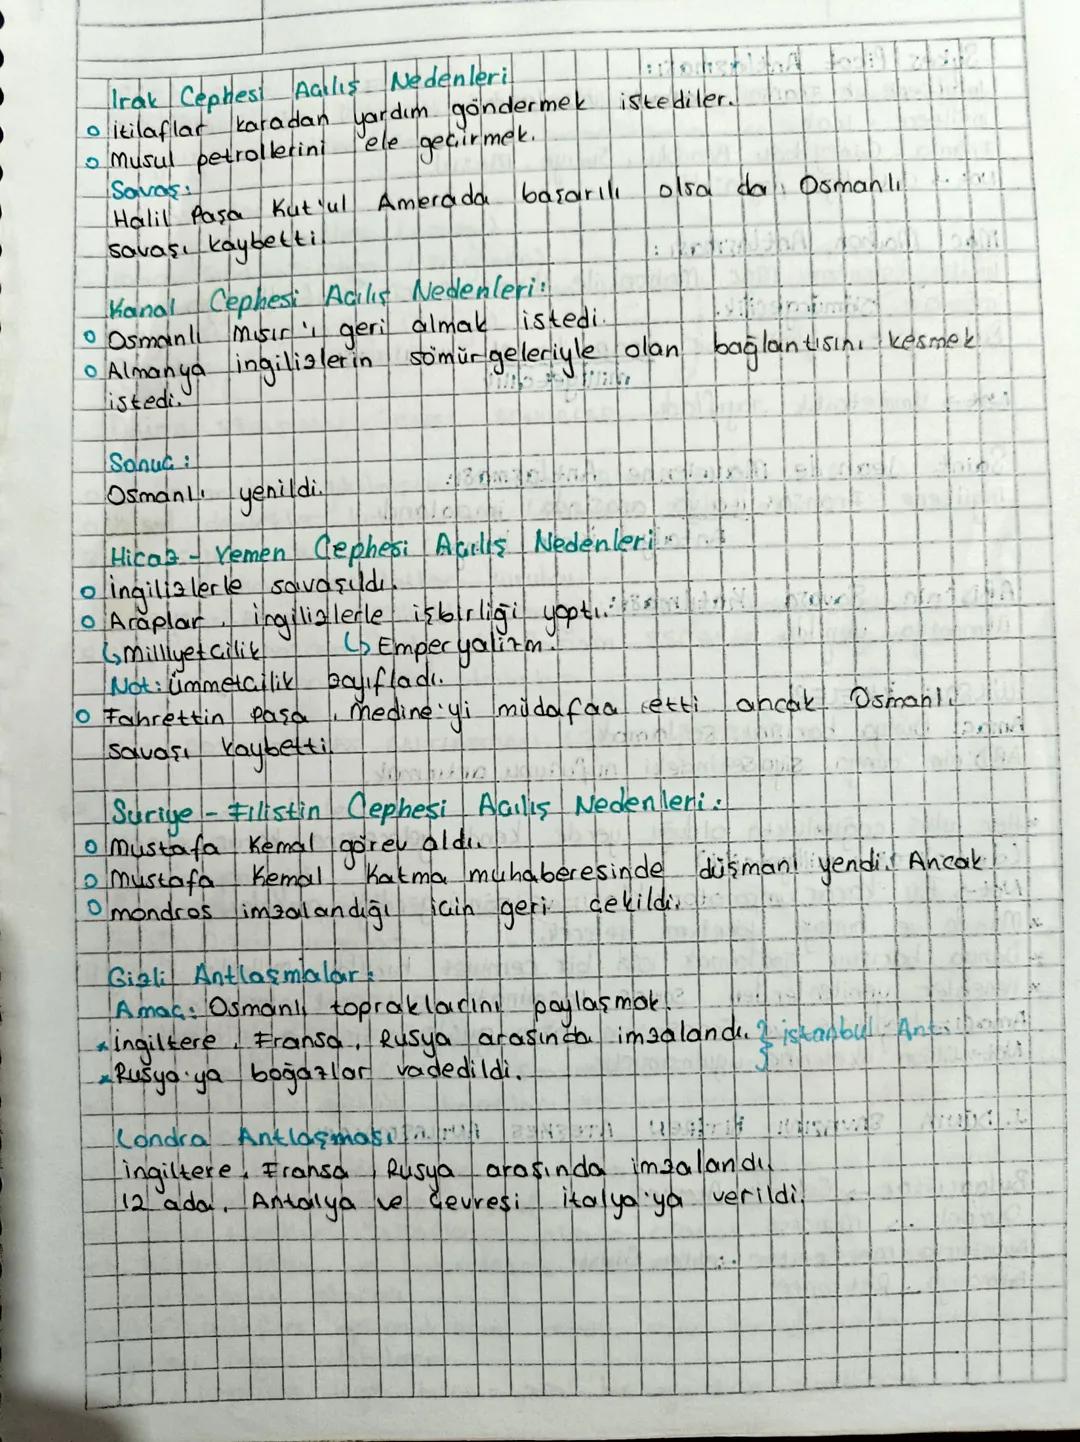 Irak Cephesi Açılış Nedenleri
o itilaflar karadan yardım göndermek istediler.
o Musul petrollerini ele geçirmek.
Savaş:
Halil Paşa Kut'ul Amerada başarılı olsa da Osmanlı
savaşı kaybetti
Kanal Cephesi Açılış Nedenleri:
o Osmanlı Mısır'ı geri almak istedi.
o Almanya ingilizlerin sömürgeleriyle olan bağlantısını kesmek
istedi.
Sonuç:
Osmanlı yenildi.
Hicaz - Yemen Cephesi Açılış Nedenleri
o ingilizlerle savaşıldı.
o Araplar, ingilizlerle işbirliği yaptı.
↳ Milliyetçilik ↳ Emperyalizm.
Not: ümmetçilik zayıfladı.
o Fahrettin Paşa, Medine'yi müdafaa etti ancak Osmanlı
savaşı kaybetti
Suriye - Filistin Cephesi Açılış Nedenleri:
o Mustafa Kemal görev aldı.
o Mustafa Kemal Katma muhaberesinde düşmanı yendi. Ancak
o mondros imzalandığı için geri çekildi.
Gizli Antlaşmalar:
Amaç: Osmanlı topraklarını paylaşmak.
* ingiltere, Fransa, Rusya arasında imzalandı. } istanbul Ant.
* Rusya'ya boğazlar vadedildi.
Londra Antlaşması
ingiltere, Fransa, Rusya arasında imzalandı
12 ada, Antalya ve çevresi italya'ya verildi.